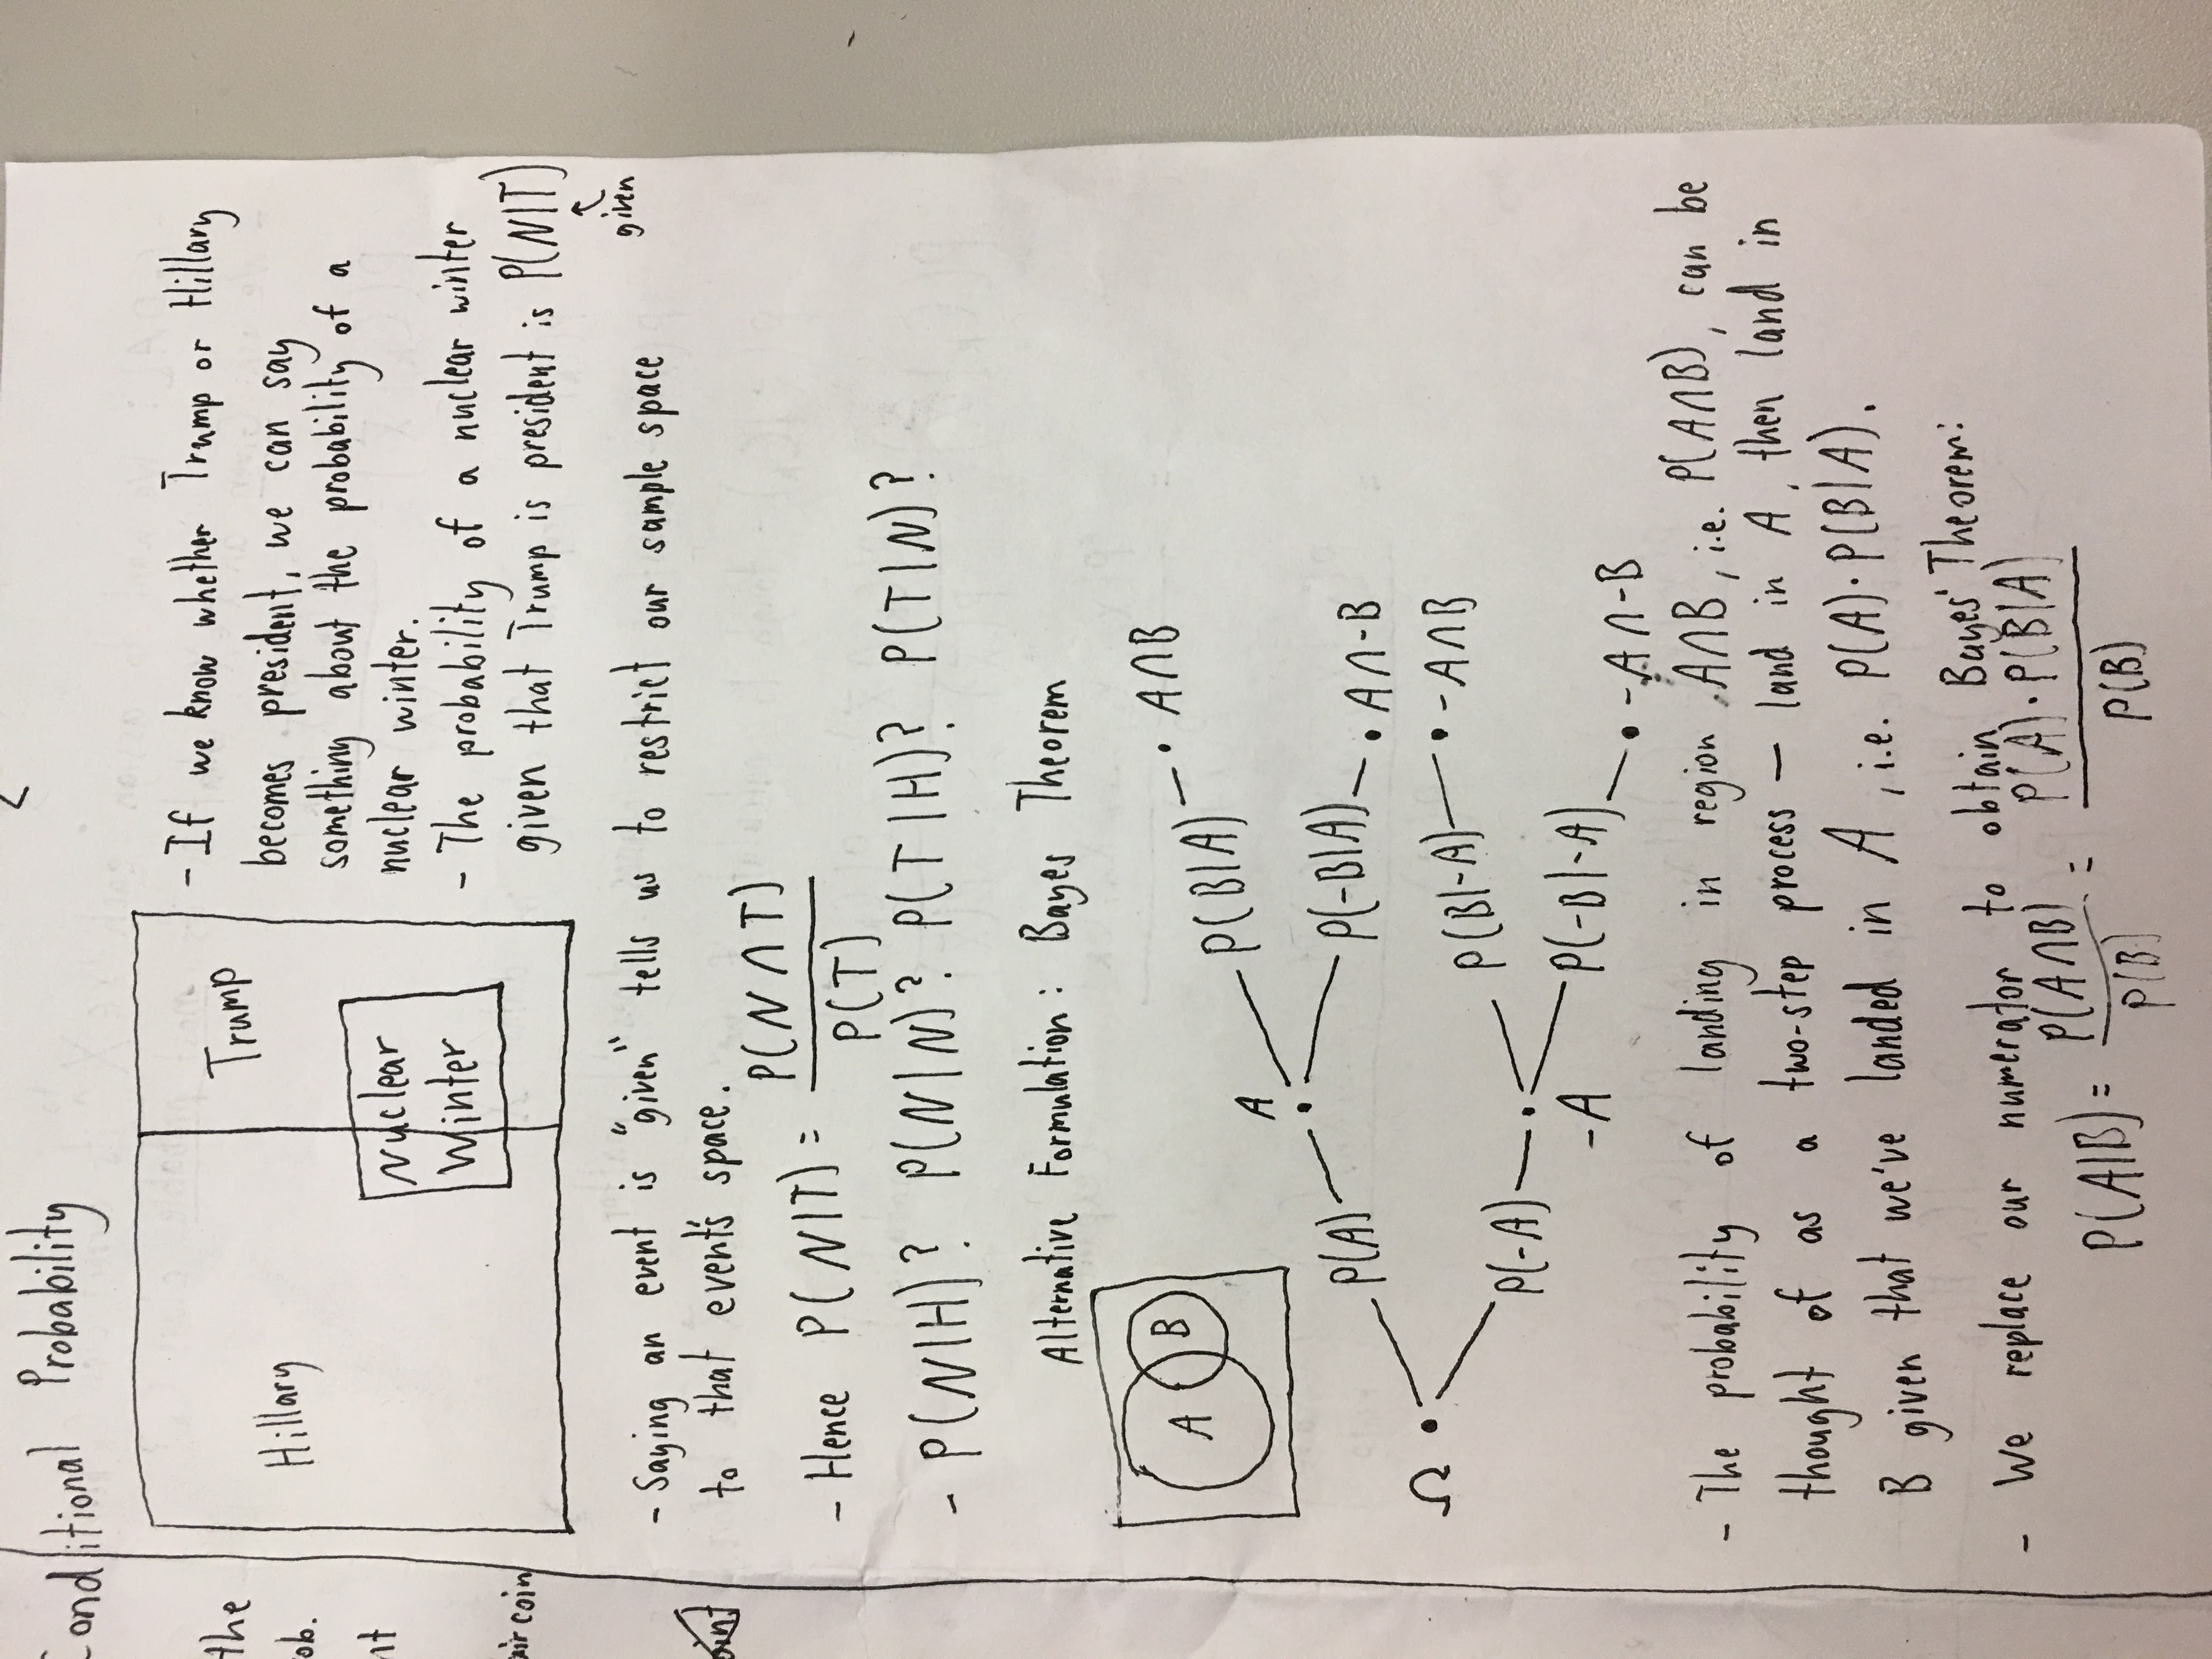 Conditional Probability
the
ob.
nt
air coin
Hillary
Trump
Nuclear
Winter
- If we know whether Trump or Hillary
becomes president, we can say
something about the probability of a
nuclear winter.
- The probability of a nuclear winter
given that Trump is president is P(N|T)
given
- Saying an event is "given" tells us to restrict our sample space
to that event's space.
- Hence P(N|T) = P(N∩T) / P(T)
- P(N|H)? P(N|N)? P(T|H)? P(T|N)?
Alternative Formulation: Bayes Theorem
A B
P(B|A) A∩B
A
P(A) P(-B|A) A∩-B
Ω
P(B|-A) -A∩B
P(-A)
-A P(-B|-A) -A∩-B
- The probability of landing in region A∩B, i.e. P(A∩B), can be
thought of as a two-step process — land in A, then land in
B given that we've landed in A, i.e. P(A)·P(B|A).
- We replace our numerator to obtain Bayes' Theorem:
P(A|B) = P(A∩B) / P(B) = P(A)·P(B|A) / P(B)